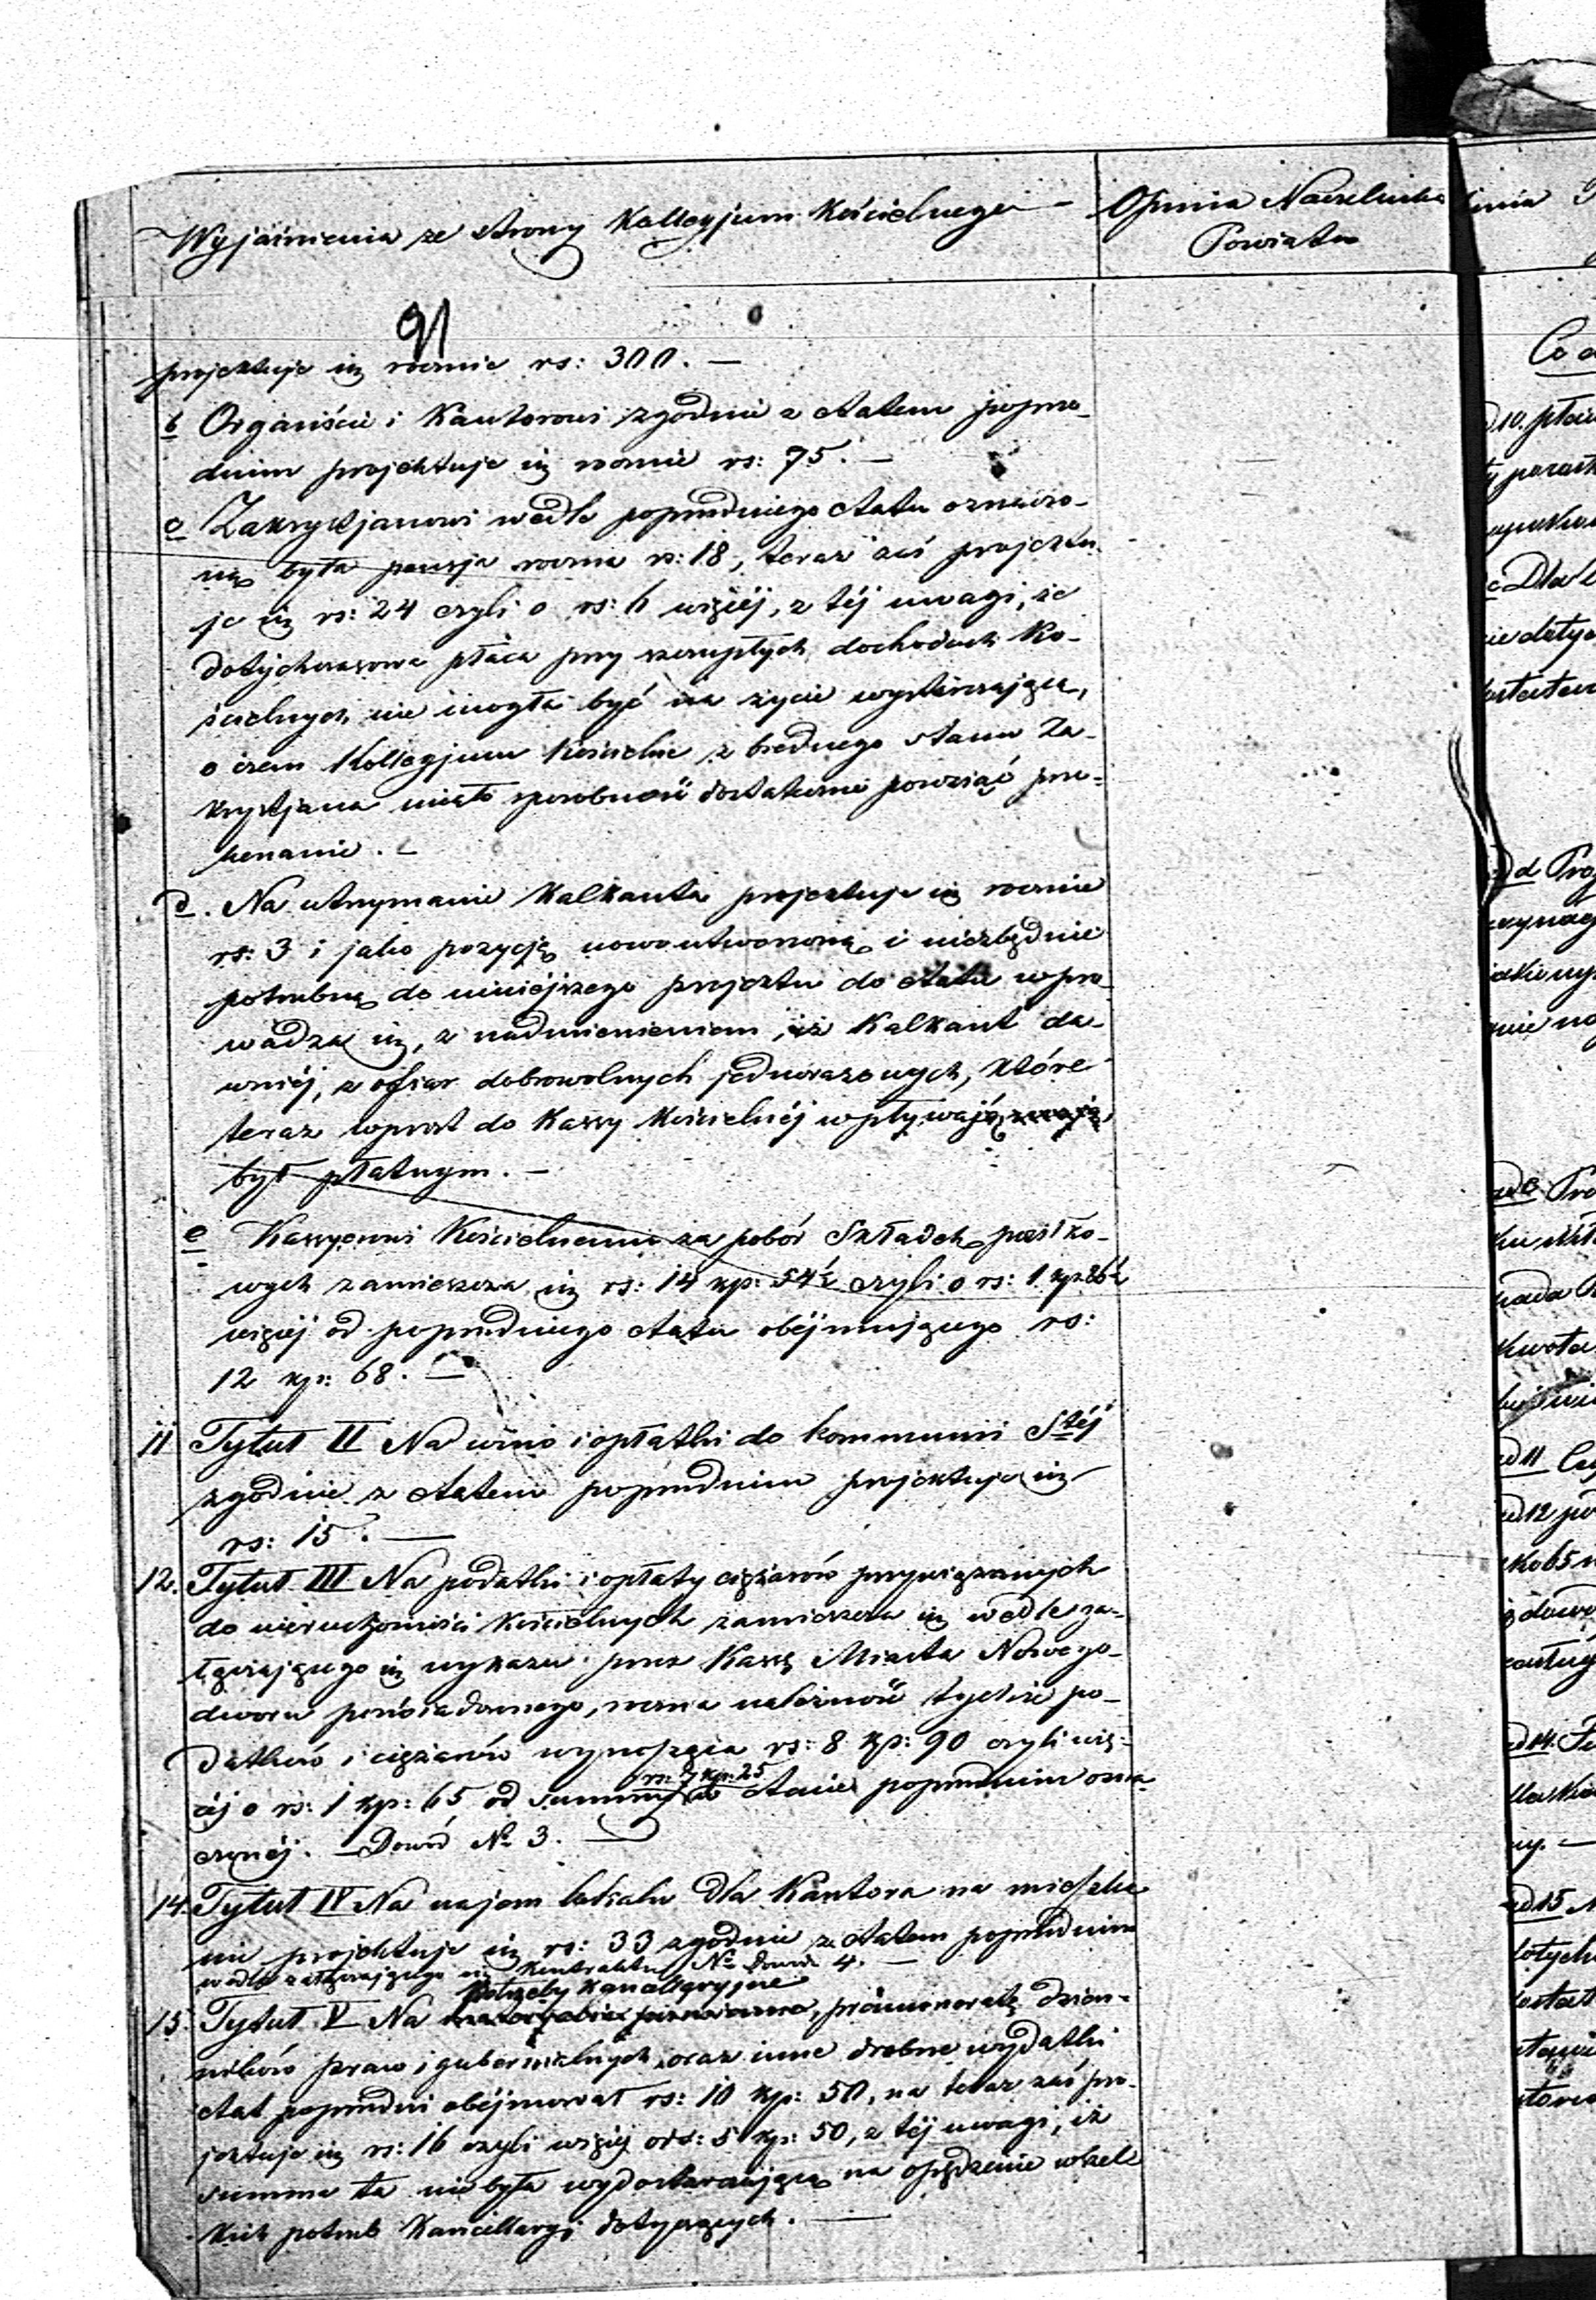 Wyjaśnienia ze strony Kollegjum Kościelnego
Opinia Naczelnika
Powiatu
91
projektuje się rocznie rs: 300. —
b Organiście i Kantorowi zgodnie z etatem poprze-
dnim projektuje się rocznie rs: 75. —
c Zakrystjanowi wedle poprzedniego etatu oznaczo-
ną była pensja roczna rs: 18, teraz zaś projektu-
je się rs: 24 czyli o rs: 6 więcéj, z téj uwagi, że
dotychczasowa płaca przy szczupłych dochodach Ko-
ścielnych nie mogła być na życie wystarczającą,
o czem Kollegjum Kościelne z biednego stanu Za-
krystjana miało sposobność dostatecznie powziąść prze-
konanie. —
d. Na utrzymanie Kalkanta projektuje się rocznie
rs: 3 i jako pozycję nowoutworzoną i niezbędnie
potrzebną do niniejszego projektu do etatu wpro-
wadza się, z nadmienieniem, iż Kalkant da-
wniéj, z ofiar dobrowolnych jednorazowych, które
teraz wprost do Kassy Kościelnéj wpływają,
był płatnym. —
e Kassyerowi Kościelnemu za pobór Składek
wych zamieszcza się rs: 14 kp: 54½ czyli o rs: 1 kp 86½
więcéj od poprzedniego etatu obéjmującego rs:
12 kp: 68. —
11 Tytuł II Na wino i opłatki do kommunii Stéj
zgodnie z etatem poprzednim projektuje się
rs: 15. —
12. Tytuł III Na podatki i opłaty ciężarów przywiązanych
do nieruchomości Kościelnych zamieszcza się wedle za-
łączającego się wykazu przez Kassę Miasta Nowego-
dworu poświadczonego, roczna należność tychże po-
datków i ciężarów wynosząca rs: 8 kp: 90 czyli wię-
céj o rs: 1 kp: 65 od summy rs: 7 kp: 25 w etacie poprzednim ozna-
czonéj. — Dowód No 3. —
14. Tytuł IV Na najem lokalu dla Kantora na mieszka-
nie projektuje się rs: 33 zgodnie z etatem poprzednim
wedle załączającego się Kontraktu No Dowód 4. —
potrzeby Kancellaryjne
15. Tytuł V Na prenumeratę dzien-
ników praw i gubernialnych, oraz inne drobne wydatki
etat poprzedni obéjmował rs: 10 kp: 50, na teraz zaś pro-
jektuje się rs: 16 czyli więcéj o rs: 5 kp: 50, z téj uwagi, iż
summa ta nie była wydostarczającą na opędzenie wszel-
kich potrzeb Kancellaryi dotyczących. —